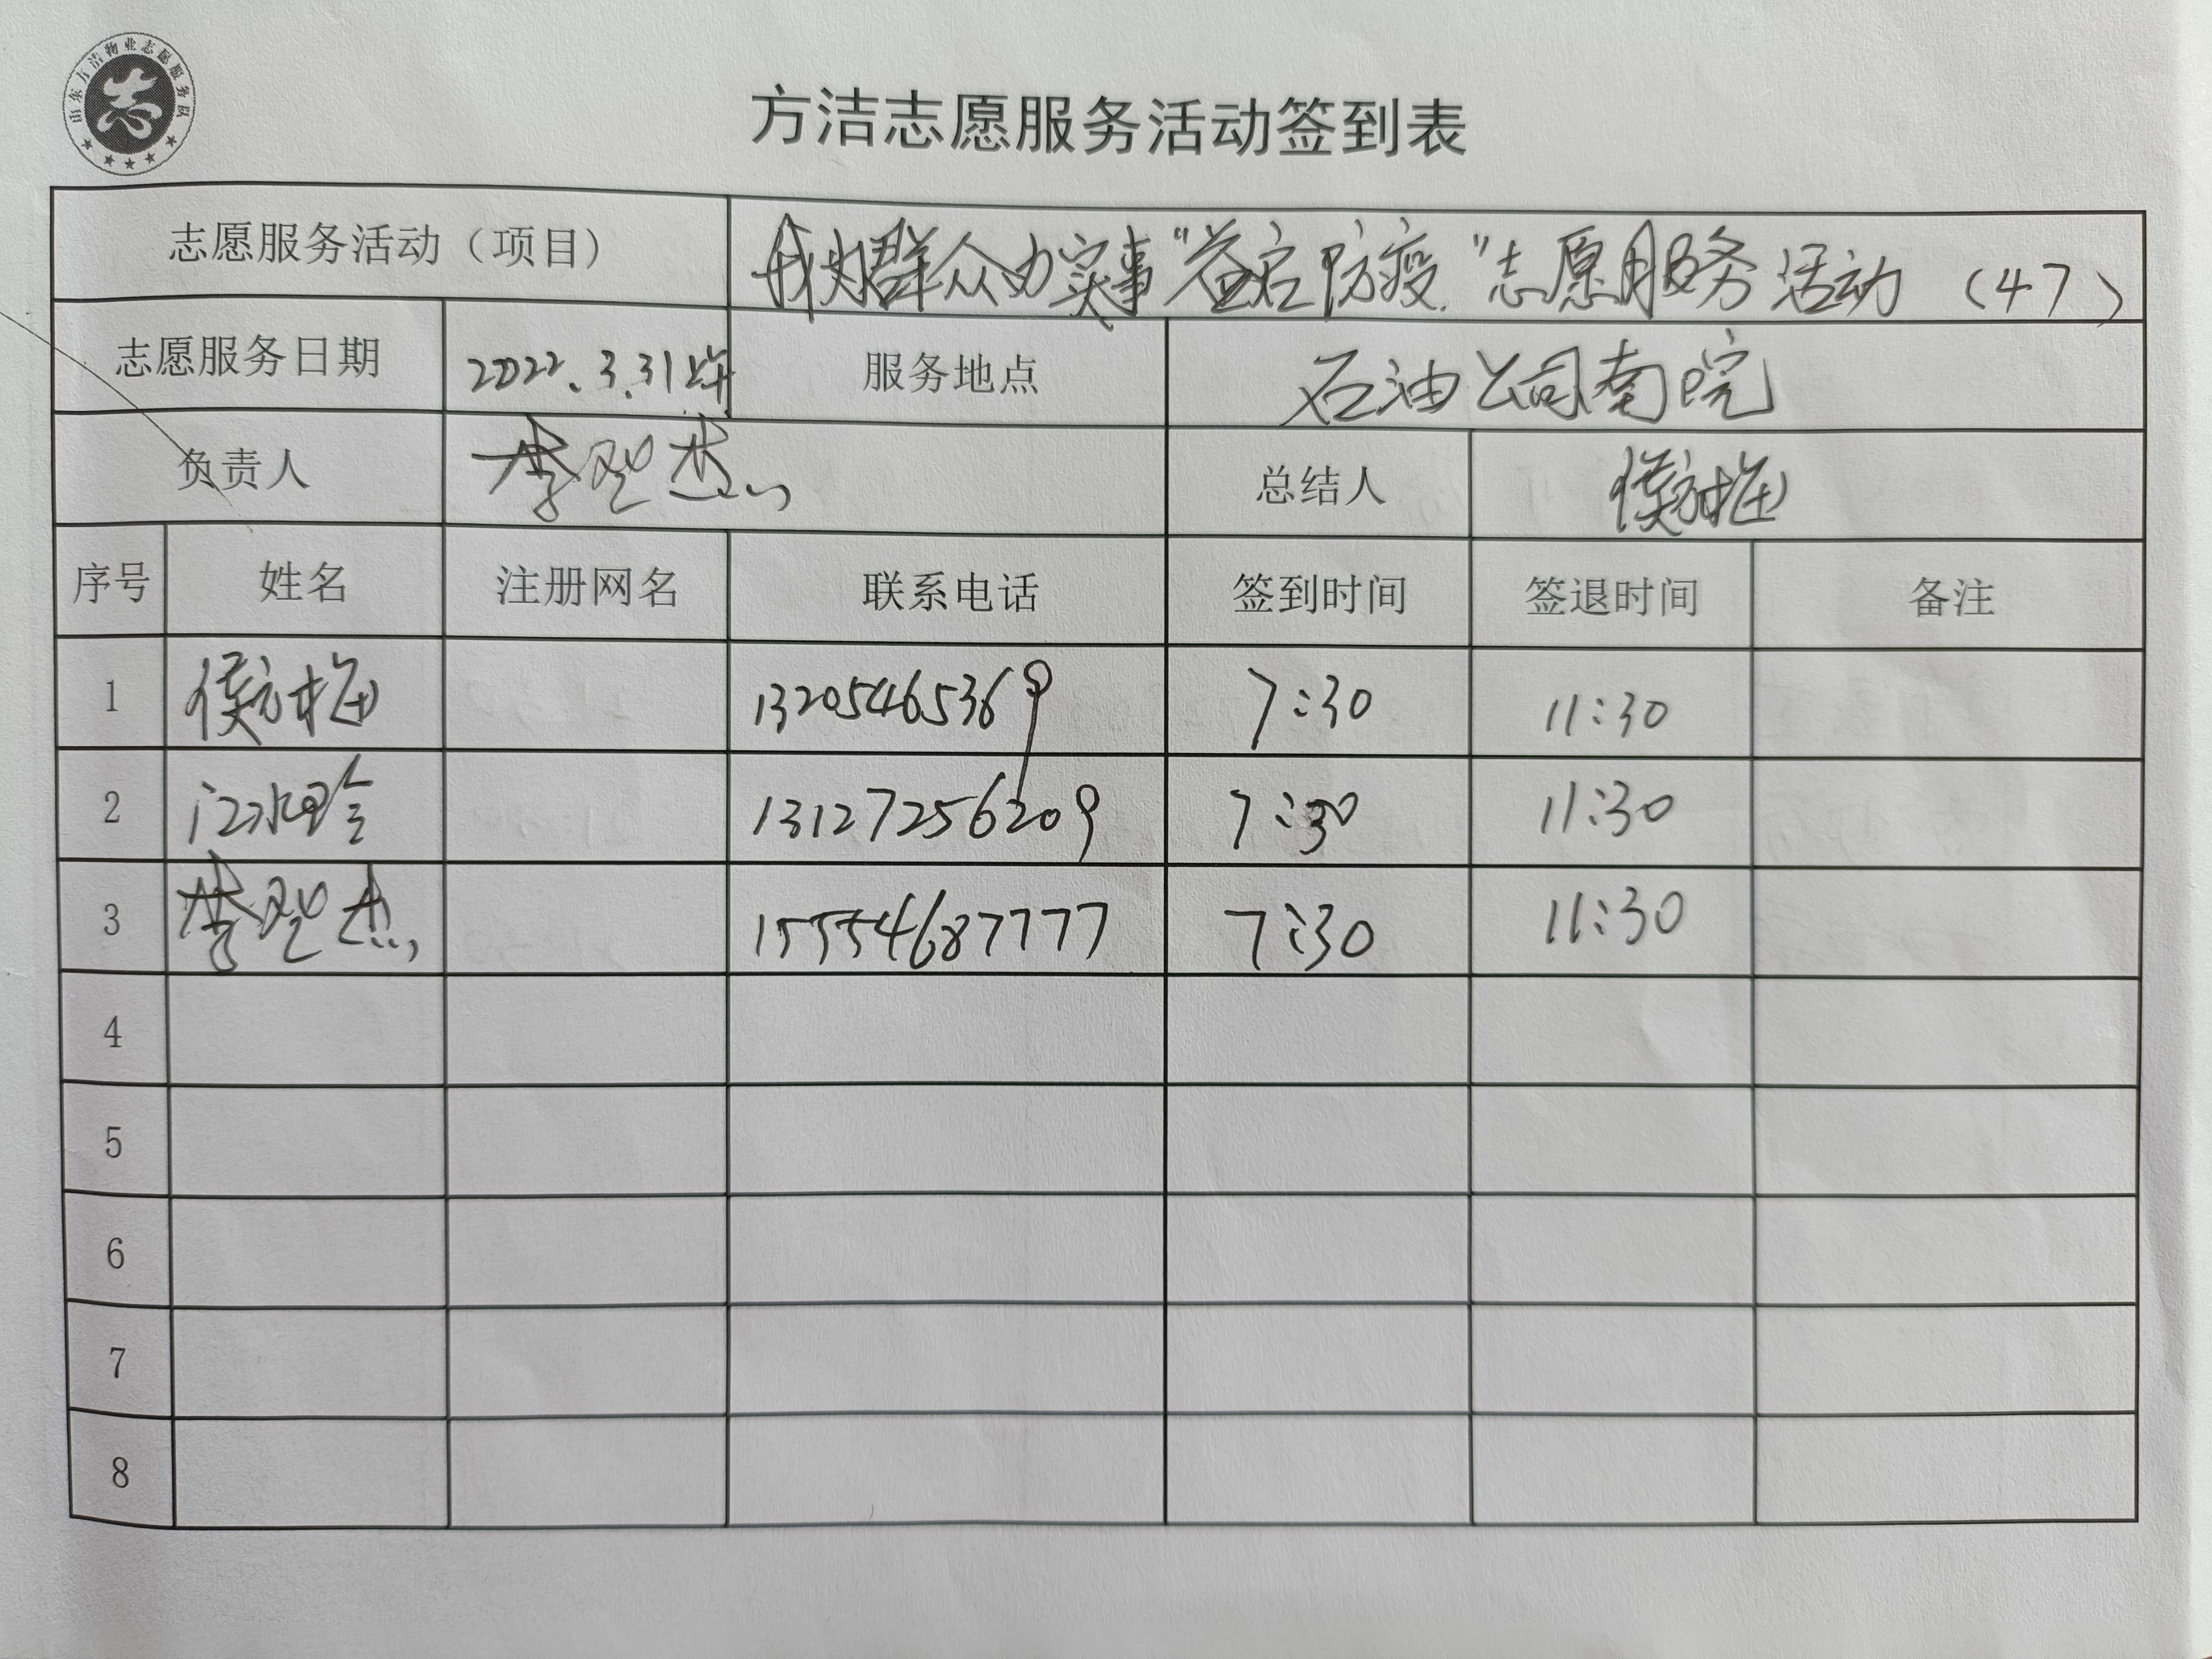 山东方洁物业志愿服务队
志
方洁志愿服务活动签到表
志愿服务活动（项目） 我为群众办实事“益启防疫”志愿服务活动（47）
志愿服务日期 2022.3.31上午 服务地点 石油公司南院
负责人 李 杰 总结人 侯方梅
序号 姓名 注册网名 联系电话 签到时间 签退时间 备注
1 侯方梅 13205465369 7:30 11:30
2 13127256209 7:30 11:30
3 李 杰 15554687777 7:30 11:30
4
5
6
7
8